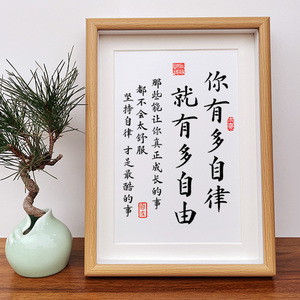 你有多自律
就有多自由
那些能让你真正成长的事
都不会太舒服
坚持自律 才是最酷的事